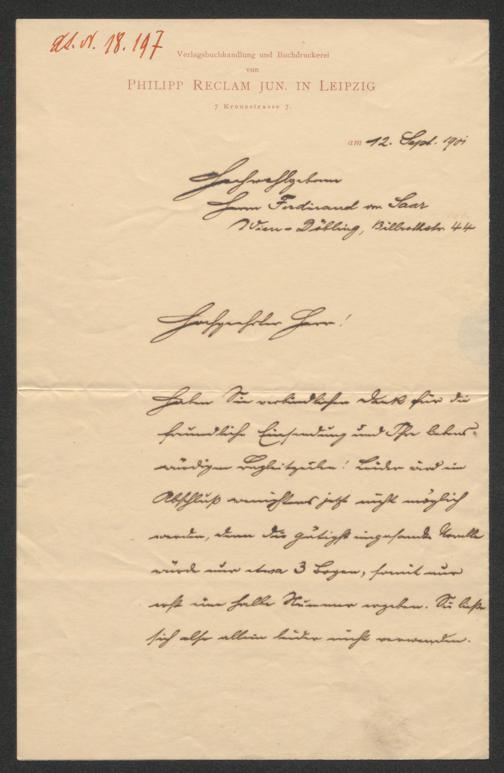 I. N. 18.197
Verlagsbuchhandlung und Buchdruckerei
von
PHILIPP RECLAM JUN. IN LEIPZIG
7 Kreuzstrasse 7.
am 12. Sept. 1901
Hochwohlgeboren
Herrn Ferdinand von Saar
Wien-Döbling, Billrothstr. 44
Hochgeehrter Herr!
Haben Sie verbindlichen Dank für die
freundliche Einsendung und Ihre liebens-
würdigen Begleitzeilen! Leider wird ein
Abschluß wenigstens jetzt nicht möglich
werden, denn die gütigst eingesandte Novelle
würde nur etwa 3 Bogen, somit nur
erst eine halbe Nummer ergeben. Sie ließe
sich also allein leider nicht verwenden.